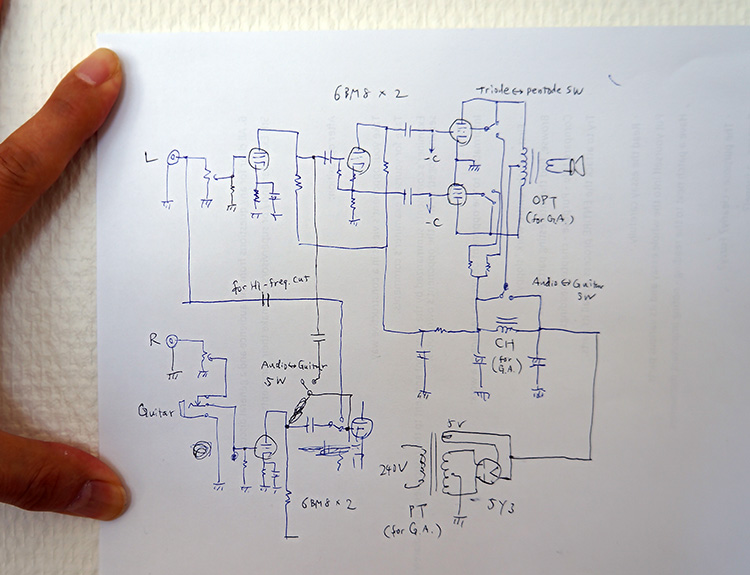 6BM8 × 2
Triode↔pentode SW
L
-C
-C
OPT
(for G.A.)
for Hi-freq. cut
Audio↔Guitar
SW
CH
(for
G.A.)
R
Audio↔Guitar
SW
Guitar
5V
240V
6BM8 × 2
5Y3
PT
(for G.A.)